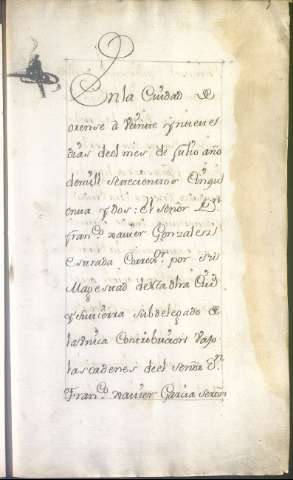 En la Ciudad de
orense a veinte y nueve
dias deel mes de Julio año
de mill setecientos Cinqu
enta y dos: el señor Dn
Franco xavier Gonzalez
estrada Correxor por su
Magestad de esta dha Ciud
y su tierra subdelegado de
la Unica Contribucion vajo
las ordenes deel señor Dn
Franco xavier Garcia